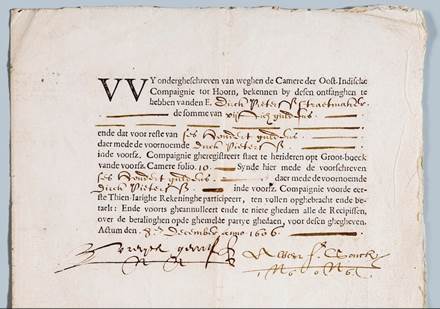 VVY ondergheschreven van weghen de Camere der Oost-Indische
Compaignie tot Hoorn, bekennen by desen ontfanghen te
hebben vanden E. Dirck Pieterß Straetmaker
de somme van
ende dat voor reste van ses hondert guldens
daer mede de voornoemde Dirck Pieterß
inde voorsz. Compaignie gheregistreert staet te herideren opt Groot-boeck
vande voorsz Camere folio. 10 Synde hier mede de voorschreven
ses hondert guldens daer mede de voornoemde
Dirck Pieterß inde voorsz. Compaignie voorde eer-
ste Thien-Iarighe Rekeninghe participeert, ten vollen opghebracht ende be-
taelt: Ende voorts gheannulleert ende te niete ghedaen alle de Recipissen,
over de betalinghen opde ghemelte partye ghedaen, voor desen ghegheven.
Actum den December anno 1606